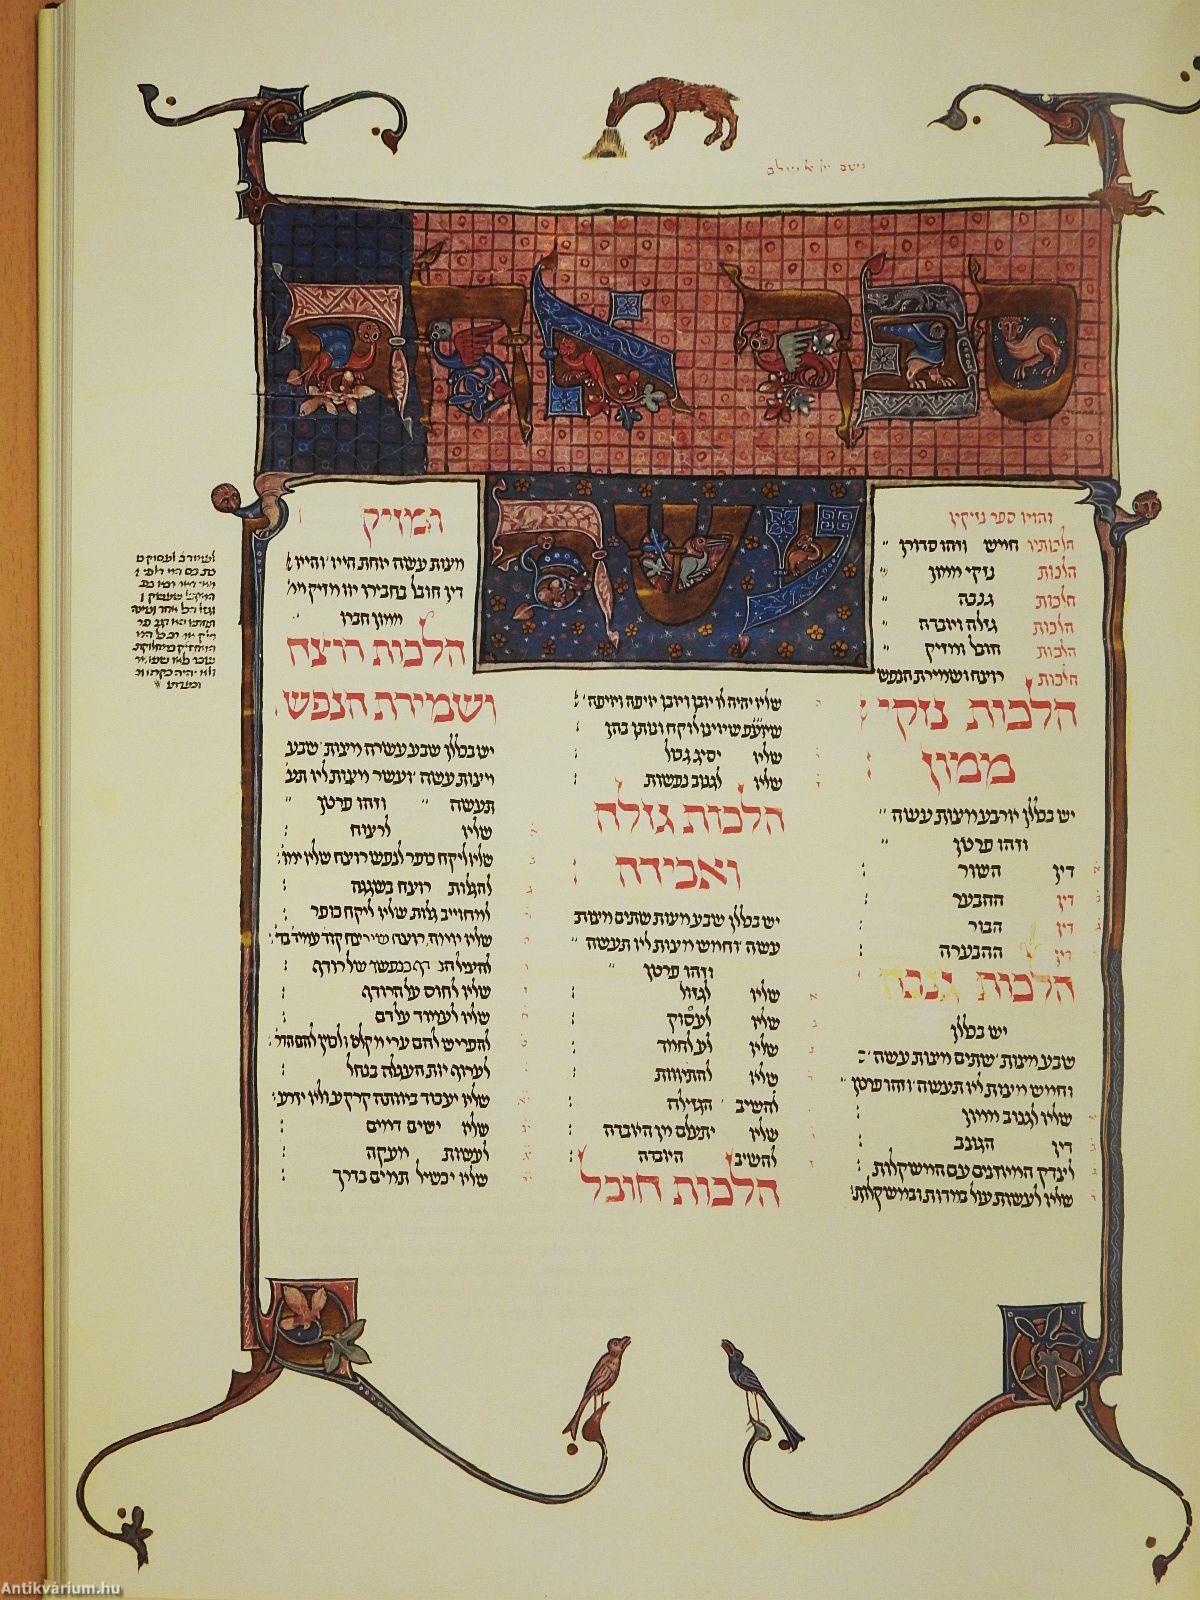 ספר אחד
עשר
והוא ספר נזיקין
הלכותיו חמש וזהו סדורן
הלכות נזקי ממון
הלכות גנבה
הלכות גזלה ואבדה
הלכות חובל ומזיק
הלכות רוצח ושמירת הנפש
הלכות נזקי
ממון
יש בכללן ארבע מצות עשה
וזהו פרטן
דין השור
דין ההבער
דין הבור
דין ההבערה
הלכות גנבה
יש בכללן
שבע מצות שתים מצות עשה
וחמש מצות לא תעשה וזהו פרטן
שלא לגנוב ממון
דין הגנב
לצדק המאזנים עם המשקלות
שלא לעשות עול במדות ובמשקלות
שלא יהיה לו אבן ואבן איפה ואיפה
שלא
שלא יסיג גבול
שלא לגנוב נפשות
הלכות גזלה
ואבידה
יש בכללן שבע מצות שתים מצות
עשה וחמש מצות לא תעשה
וזהו פרטן
שלא לגזול
שלא לעשוק
שלא לחמד
שלא להתאוות
להשיב הגזילה
שלא יתעלם מן האבדה
להשיב האבדה
הלכות חובל
ומזיק
מצות עשה אחת היא והיא
דין חובל בחבירו או מזיק
ממון חברו
הלכות רוצח
ושמירת הנפש
יש בכללן שבע עשרה מצות שבע
מצות עשה ועשר מצות לא
תעשה וזהו פרטן
שלא לרצוח
שלא ליקח כופר לנפש רוצח שלא
להגלות רוצח בשגגה
למחוייב גלות שלא ליקח כופר
שלא יומת רוצח
להציל הנרדף בנפשו של רודף
שלא לחוס על הרודף
שלא לעמוד על דם
להפריש להם ערי מקלט ולכוין להם הדרך
לערוף את העגלה בנחל
שלא יעבוד באותה קרקע ולא יזרע
שלא ישים דמים
לעשות מעקה
שלא יכשיל תמים בדרך
Antikvárium.hu